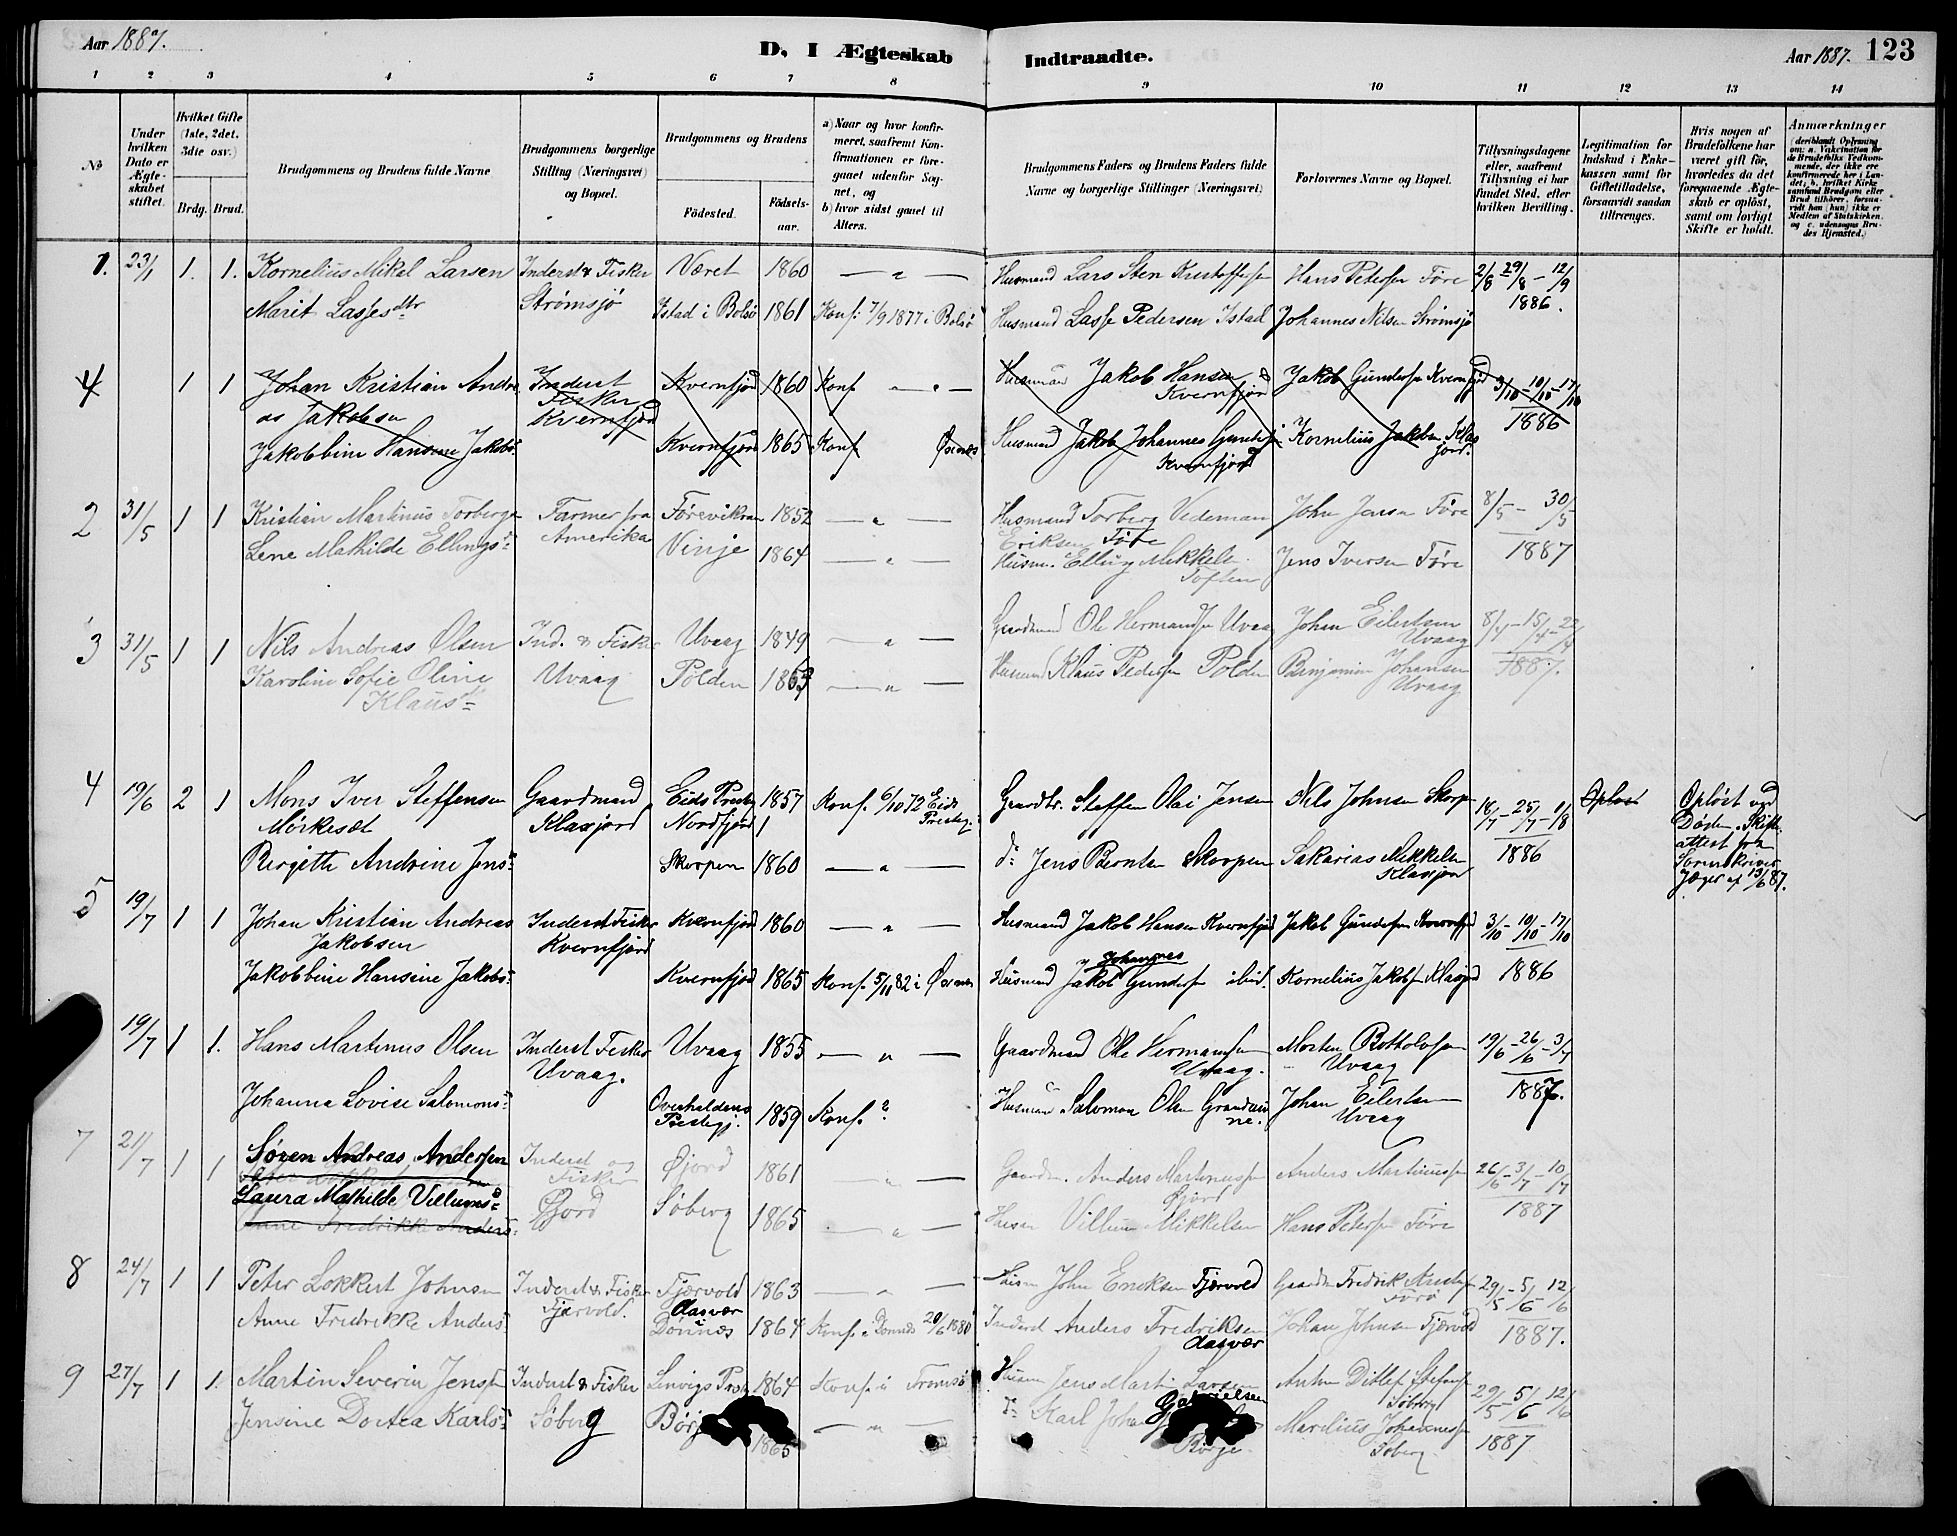 Aar 1887.
D. I Ægteskab
Indtraadte.
Aar 1887.
123
1 2 3 4 5 6 7 8 9 10 11 12 13 14
No
Under hvilken Dato er Ægteskabet stiftet.
Hvilket Gifte (1ste, 2det, 3die osv.)
Brdg. Brud.
Brudgommens og Brudens fulde Navne
Brudgommens borgerlige Stilling (Næringsvei) og Bopæl.
Brudgommens og Brudens
Fødested.
Fødsels-aar.
a) Naar og hvor konfirmeret, saafremt Konfirmationen er foregaaet udenfor Sognet, og
b) hvor sidst gaaet til Alters.
Brudgommens Faders og Brudens Faders fulde Navne og borgerlige Stillinger (Næringsvei)
Forlovernes Navne og Bopæl.
Tillysningsdagene eller, saafremt Tillysning ei har fundet Sted, efter hvilken Bevilling.
Legitimation for Indskud i Enkekassen samt for Giftetilladelse, forsaavidt saadan tiltrænges.
Hvis nogen af Brudefolkene har været gift før, hvorledes da det foregaaende Ægteskab er opløst, samt om lovligt Skifte er holdt.
Anmærkninger
(deriblandt Oplysning om: a. Vaccination for de Brudefolks Vedkommende, der ikke ere konfirmerede her i Landet; b. hvilket Kirkesamfund Brudgom eller Brud tilhører, forsaavidt han (hun) ikke er Medlem af Statskirken, og c. udensogns Brudes Hjemsted.)
1. 23/1 1. 1. Kornelius Mikal Larsen Inderst & Fisker Været 1860 — " — Husmand Lars Sten Kristoffersen Hans Petersen Føre 2/8 29/8 - 12/9
Marit Lasjesdtr Strømsjø Istad i Bolsø 1861 Konf. 7/9 1877 i Bolsø Husmand Lasse Pedersen Istad Johannes Nilsen Strømsjø 1886.
4 1 1 Johan Kristian Andre Inderst Kvernfjord 1860 Konf — " — Husmand Jakob Hansen Jakob Gundersen Kvernfjord 3/10 - 10/10 - 17/10
as Jakobsen Fisker Kvernfjord Kvernfjord 1886
Jakobbine Hansine Jakobs= Kvernfjord 1865 Konf Øxnes Husmand Jakob Johannes Gunders Kornelius Jakobsen Klaxjord
Kvernfjord
2 31/5 1 1 Kristian Martinus Torbergs Farmer fra Førevikran 1852 — " — Husmand Torberg Vedeman John Jensen Føre 8/5 - 30/5
Lene Mathilde Ellings= Amerika Vinje 1864 — " — Eriksen Føre 1887
Husm. Elling Mikkels. Toften Jens Iversen Føre
3 31/5 1 1 Nils Andreas Olsen Ind. & Fisker Uvaag 1849 — " — Gaardmand Ole Hermandsen Uvaag Johan Eilertsen Uvaag 8/4 - 15/4 -
Karoline Sofie Oline Uvaag Polden 1863 — " — Husmand Klaus Pedersen Polden Benjamin Johansen Uvaag 1887.
Klaus=
4 19/6 2 1 Mons Iver Steffensen Gaardmand Eids Prestg 1857 Konf. 6/10 72 Eids Presteg. Gaardbr. Steffen Olai Jensen Nils Johnsen Skorpen 18/7 - 25/7 - 1/8 Opløst Opløst ved
Mørkesæt Klaxjord Nordfjord Død. Skifte
Birgitte Andrine Jens= Skorpen 1860 — " — do Jens Berntsen Skorpen Sakarias Mikkelsen Klaxjord 1886 attest fra
Sorenskriver
Jæger af 13/6 87.
5 19/7 1 1 Johan Kristian Andreas Inderst Fisker Kvernfjord 1860 — " — Husmand Jakob Hansen Kvernfjord Jakob Gundersen Kvernfjord 3/10 - 10/10 - 17/10
Jakobsen Kvernfjord
Jakobbine Hansine Jakobs= Kvernfjord 1865 Konf. 5/11 82 i Øxnes Husmand Jakob Johannes Gundersen ibid. Kornelius Jakobsen Klaxjord 1886
19/7 1 1. Hans Martinus Olsen Inderst Fisker Uvaag 1855 — " — Gaardmand Ole Hermansen Uvaag. Morten Rotholvsen Uvaag 19/6 - 26/6 - 3/7
Uvaag.
Johanna Lovise Salomons= Overhaldens Prestegj. 1859 Konf. ? Husmand Salomon Olsen Johan Eilertsen Uvaag 1887.
7 21/7 1 1 Søren Andreas Andersen Inderst og Fisker Øjord 1861 — " — Gaardm. Anders Martinussen Øjord Anders Martinussen 26/6 - 3/7 - 10/7
Laura Mathilde Villums= Øjord Søberg 1865 — " — Husm Villum Mikkelsen Hans Petersen Føre 1887
Anne Fredrikke Anders=
8 24/7 1 1 Peter Lokkert Johnsen Inderst & Fisker Fjærvold 1863 — " — Husm John Eriksen Fjærvold Gaardm Fredrik Førø 29/5 - 5/6 12/6
Anne Fredrikke Anders= Fjærvold. Aasvær Dønnæs 1864 Konf. i Dønnes 20/6 1880 Inderst Anders Fredriksen Aasvær Johan Johnsen Fjærvold 1887.
9 27/7 1 1. Martin Severin Jensen Inderst & Fisker Lenvigs Prstg 1864 Konf. i Tromsø Husm Jens Martin Larsen Anton Ditlef Stefansen Søberg 29/5 - 5/6 12/6
Jensine Dortea Karls= Søberg Børj 1865 — " — do Karl Johan Gabrielsen Børge. Marelius Johannessen Søberg 1887